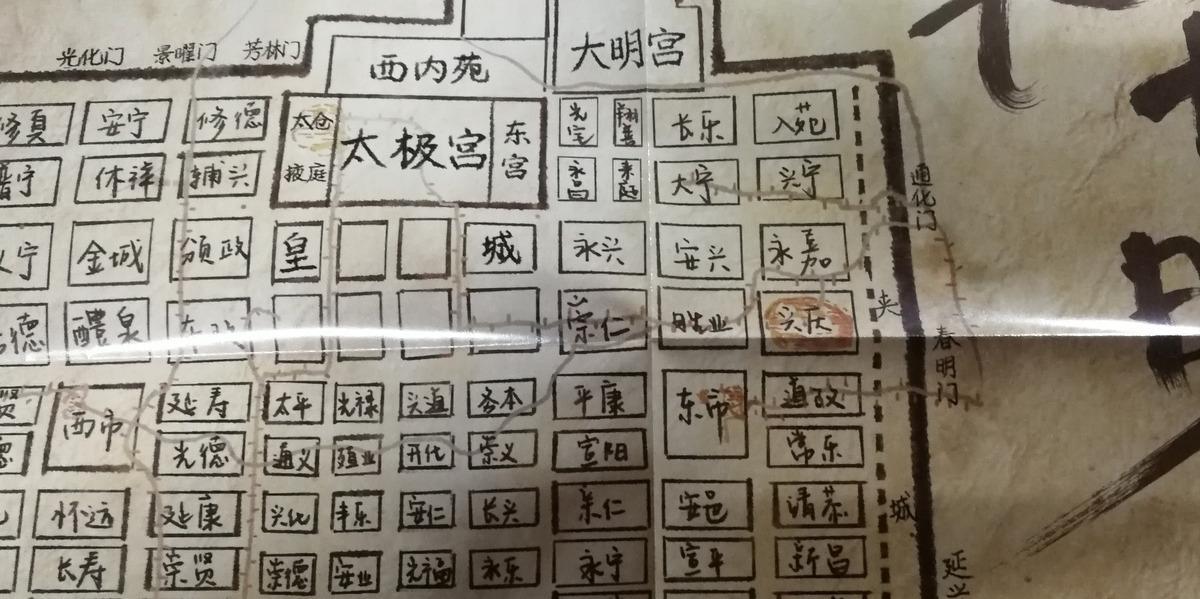 大明宫
西内苑
光化门 景曜门 芳林门
修真 安宁 修德 太仓 太极宫 东宫 光宅 翊善 长乐 入苑
休祥 辅兴 掖庭 永昌 来庭 大宁 兴宁
通化门
金城 颁政 皇 城 永兴 安兴 永嘉
醴泉 崇仁 胜业 兴庆 夹
春明门
西市 延寿 太平 光禄 兴道 务本 平康 东市 道政
光德 通义 殖业 开化 崇义 宣阳 常乐
怀远 延康 兴化 丰乐 安仁 长兴 亲仁 安邑 靖恭 城
长寿 崇贤 崇德 安业 光福 永乐 永宁 宣平 新昌
延兴